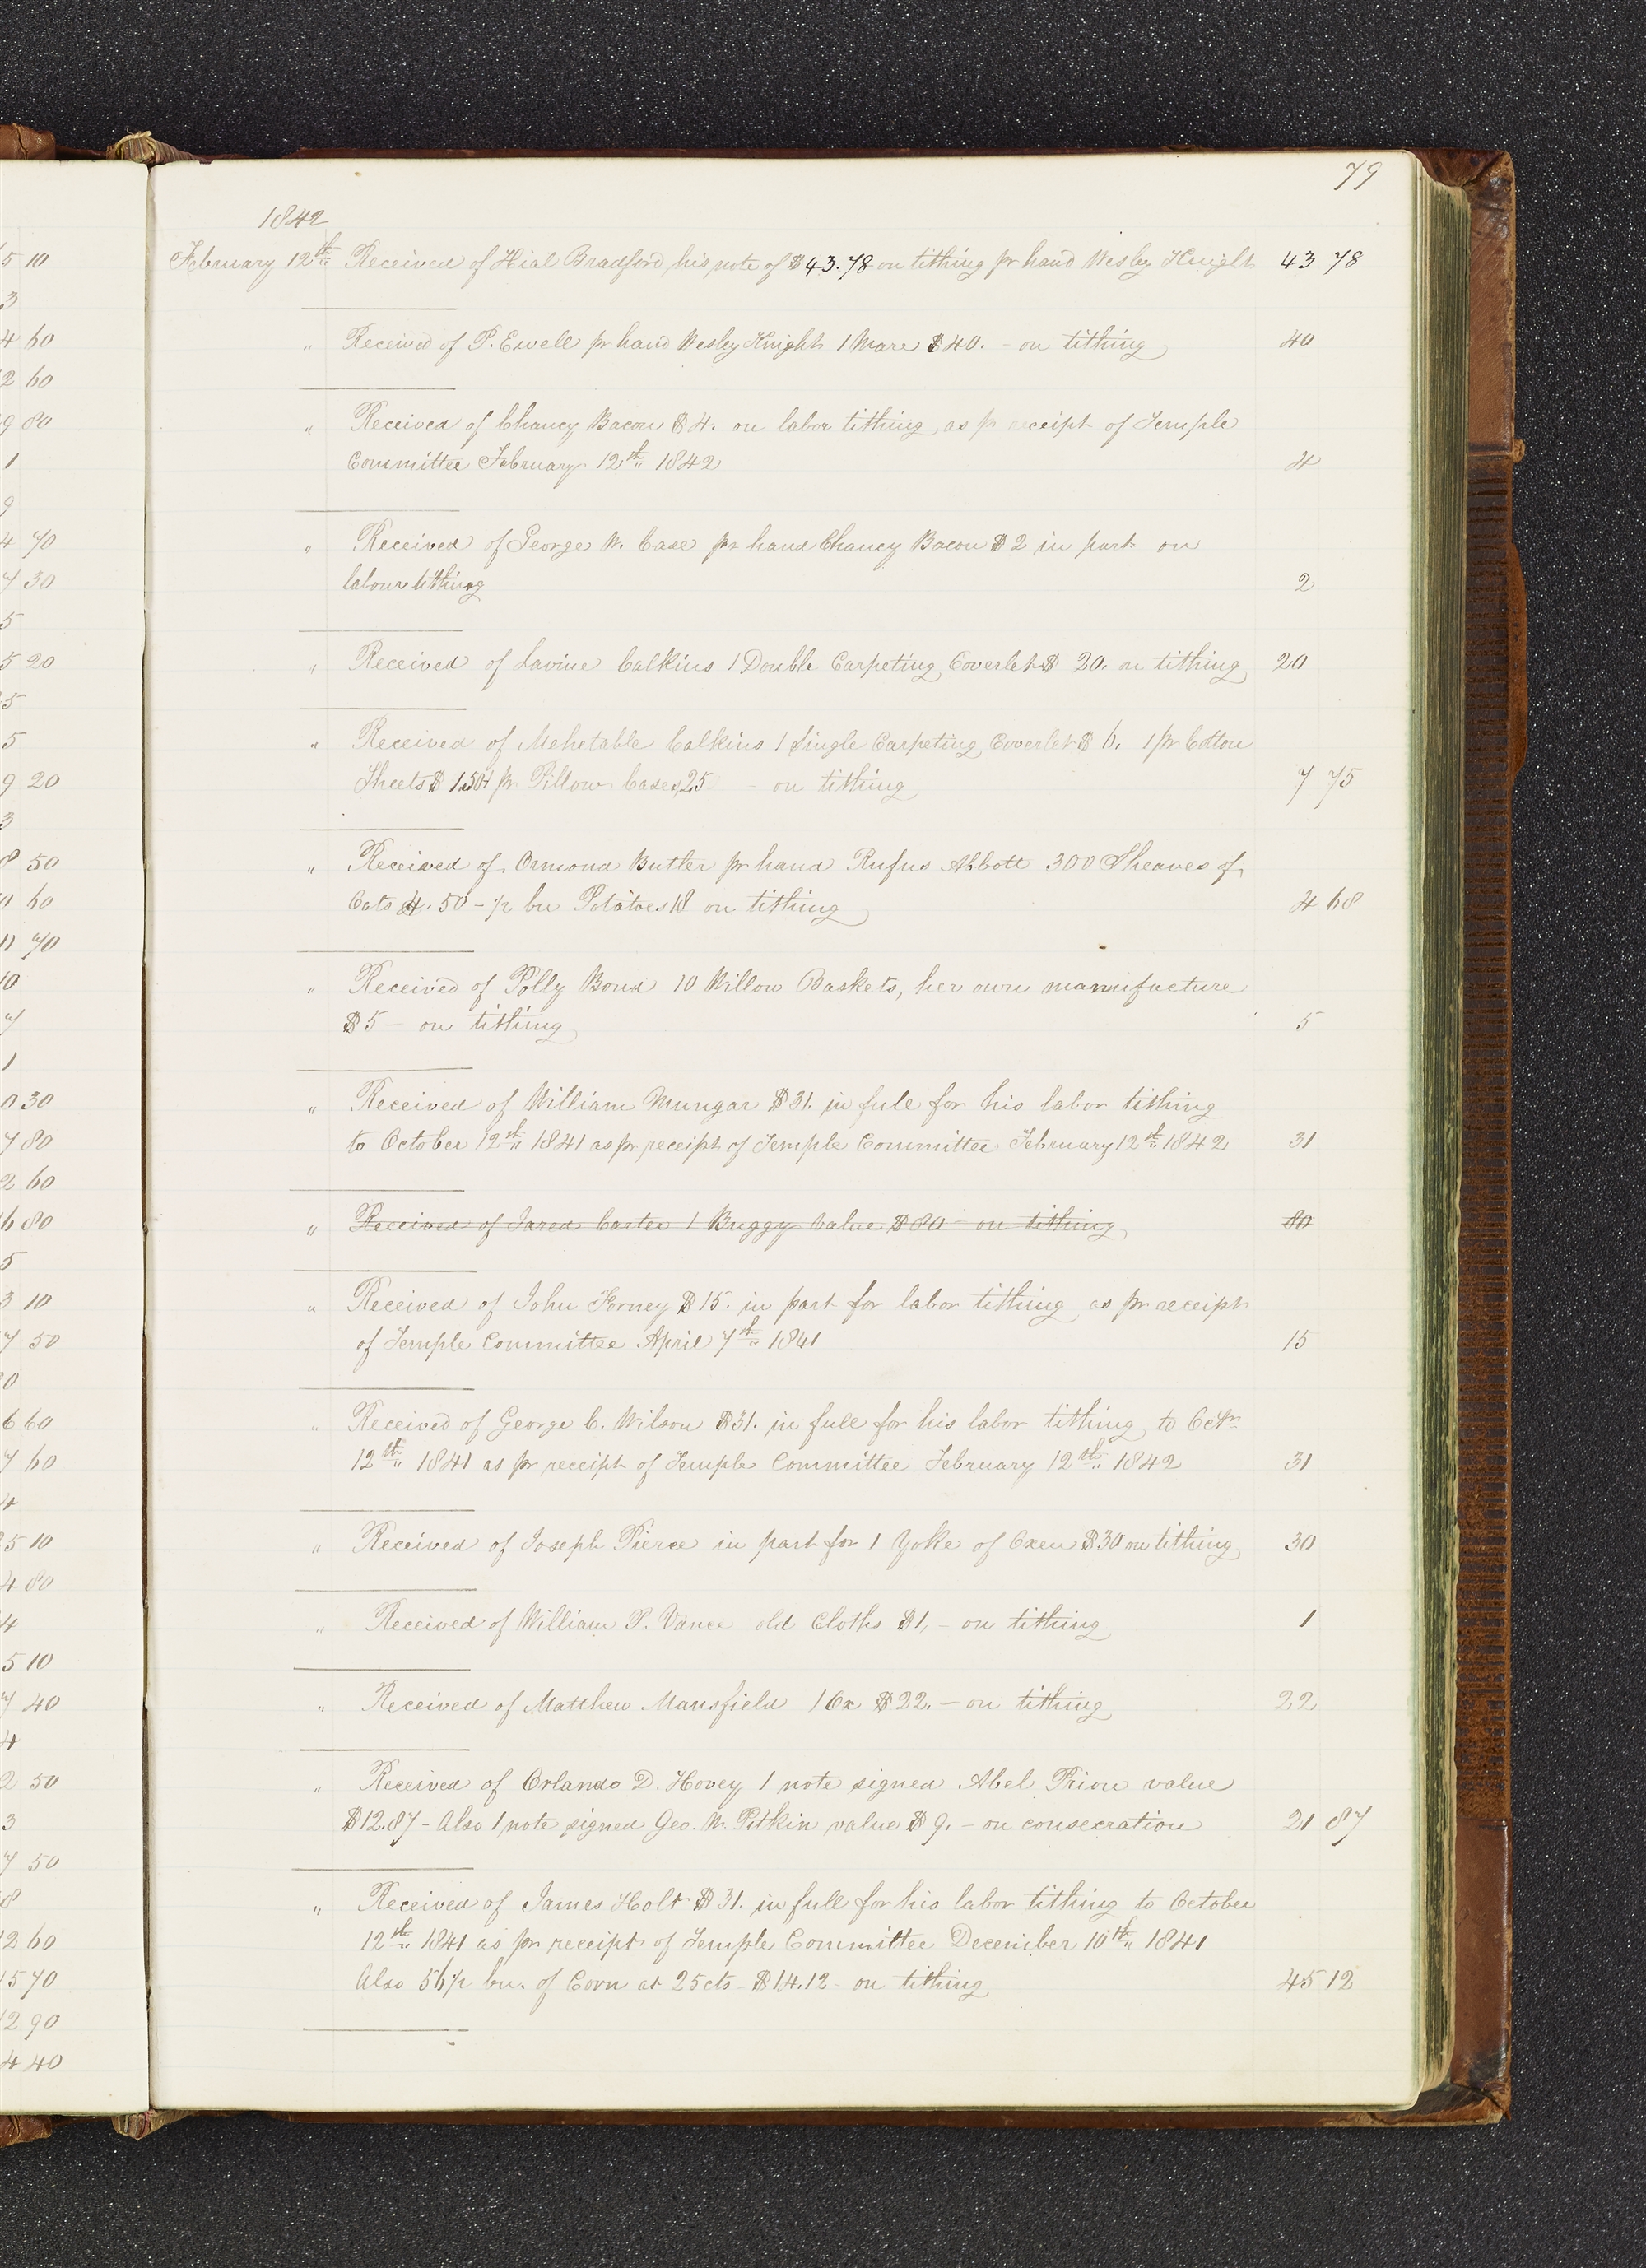 79
1842
February 12th Received of Hial Bradford his note of $43.78 on tithing pr hand Wesley Knight 43 78
" Received of P. Ewell pr hand Wesley Knight 1 Mare $40. - on tithing 40
" Received of Chancy Bacon $4. on labor tithing as pr receipt of Temple
Committee February 12th 1842 4
" Received of George W. Case pr hand Chancy Bacon $2 in part on
labour tithing 2
" Received of Lavine Calkins 1 Double Carpeting Coverlet $ 20. on tithing 20
" Received of Mehetable Calkins 1 Single Carpeting Coverlet $ 6. 1 pr Cotton
Sheets $ 1.50 1 pr Pillow Cases 25 - on tithing 7 75
" Received of Ormond Butler pr hand Rufus Abbott 300 Sheaves of
Oats $4.50 - 1/2 bu Potatoes 18 on tithing 4 68
" Received of Polly Bond 10 Willow Baskets, her own manufacture
$5 - on tithing 5
" Received of William Mungar $31. in full for his labor tithing
to October 12th 1841 as pr receipt of Temple Committee February 12th 1842 31
" Received of Jared Carter 1 Buggy value $80 - on tithing 80
" Received of John Forney $15. in part for labor tithing as pr receipt
of Temple Committee April 7th 1841 15
" Received of George C. Wilson $31. in full for his labor tithing to Octr
12th 1841 as pr receipt of Temple Committee February 12th 1842 31
" Received of Joseph Pierce in part for 1 Yoke of Oxen $30 on tithing 30
" Received of William P. Vance old Cloths $1, - on tithing 1
" Received of Matthew Mansfield 1 Ox $22. - on tithing 22
" Received of Orlando D. Hovey 1 note signed Abel Prior value
$12.87 - Also 1 note signed Geo. W. Pitkin value $9. - on consecration 21 87
" Received of James Holt $31. in full for his labor tithing to October
12th 1841 as pr receipt of Temple Committee December 10th 1841
Also 56 1/2 bu. of Corn at 25 cts - $14.12 - on tithing 45 12